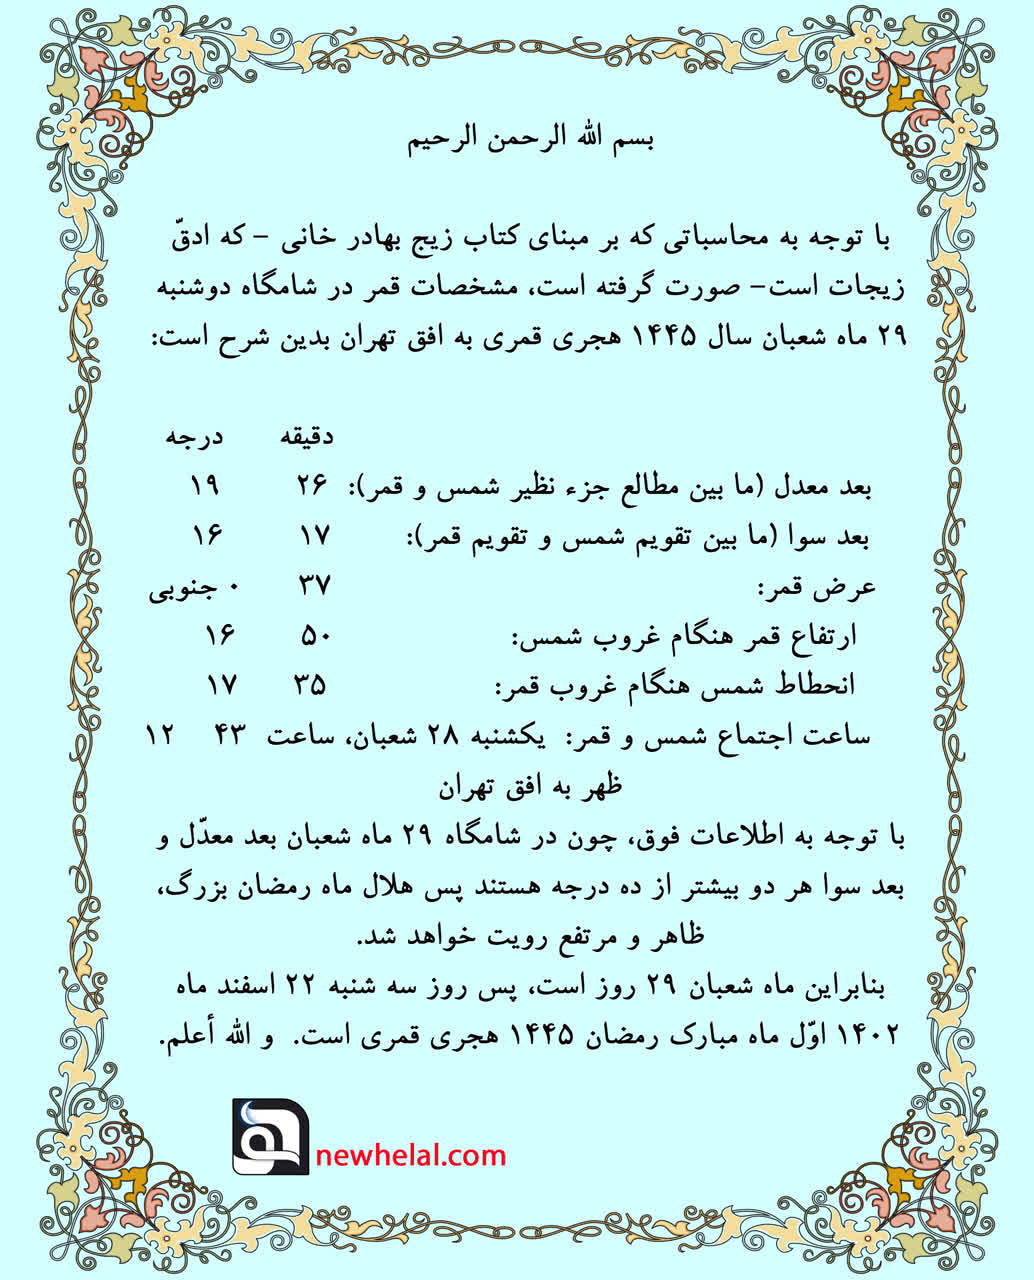 بسم الله الرحمن الرحیم
با توجه به محاسباتی که بر مبنای کتاب زیج بهادر خانی – که ادقّ
زیجات است– صورت گرفته است، مشخصات قمر در شامگاه دوشنبه
۲۹ ماه شعبان سال ۱۴۴۵ هجری قمری به افق تهران بدین شرح است:
دقیقه درجه
بعد معدل (ما بین مطالع جزء نظیر شمس و قمر): ۲۶ ۱۹
بعد سوا (ما بین تقویم شمس و تقویم قمر): ۱۷ ۱۶
عرض قمر: ۳۷ ۰ جنوبی
ارتفاع قمر هنگام غروب شمس: ۵۰ ۱۶
انحطاط شمس هنگام غروب قمر: ۳۵ ۱۷
ساعت اجتماع شمس و قمر: یکشنبه ۲۸ شعبان، ساعت ۴۳ ۱۲
ظهر به افق تهران
با توجه به اطلاعات فوق، چون در شامگاه ۲۹ ماه شعبان بعد معدّل و
بعد سوا هر دو بیشتر از ده درجه هستند پس هلال ماه رمضان بزرگ،
ظاهر و مرتفع رویت خواهد شد.
بنابراین ماه شعبان ۲۹ روز است، پس روز سه شنبه ۲۲ اسفند ماه
۱۴۰۲ اوّل ماه مبارک رمضان ۱۴۴۵ هجری قمری است. و الله أعلم.
newhelal.com